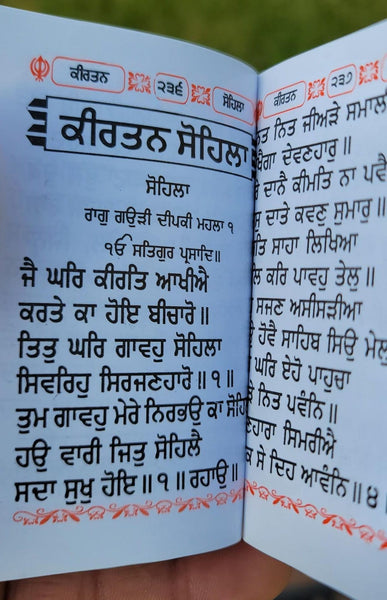 ਕੀਰਤਨ ੨੩੬ ਸੋਹਿਲਾ
ਕੀਰਤਨ ਸੋਹਿਲਾ
ਸੋਹਿਲਾ
ਰਾਗੁ ਗਉੜੀ ਦੀਪਕੀ ਮਹਲਾ ੧
ੴ ਸਤਿਗੁਰ ਪ੍ਰਸਾਦਿ॥
ਜੈ ਘਰਿ ਕੀਰਤਿ ਆਖੀਐ
ਕਰਤੇ ਕਾ ਹੋਇ ਬੀਚਾਰੋ॥
ਤਿਤੁ ਘਰਿ ਗਾਵਹੁ ਸੋਹਿਲਾ
ਸਿਵਰਿਹੁ ਸਿਰਜਣਹਾਰੋ॥੧॥
ਤੁਮ ਗਾਵਹੁ ਮੇਰੇ ਨਿਰਭਉ ਕਾ ਸੋਹਿ
ਹਉ ਵਾਰੀ ਜਿਤੁ ਸੋਹਿਲੈ
ਸਦਾ ਸੁਖੁ ਹੋਇ॥੧॥ ਰਹਾਉ॥
ਕੀਰਤਨ ੨੩੭
ਨਿਤ ਜੀਅੜੇ ਸਮਾਲੀ
ਦੇਵਣਹਾਰੁ॥
ਦਾਨੈ ਕੀਮਤਿ ਨਾ ਪਵੈ
ਦਾਤੇ ਕਵਣੁ ਸੁਮਾਰੁ॥
ਸਾਹਾ ਲਿਖਿਆ
ਕਰਿ ਪਾਵਹੁ ਤੇਲੁ॥
ਸਜਣ ਅਸੀਸੜੀਆ
ਹੋਵੈ ਸਾਹਿਬ ਸਿਉ ਮੇਲੁ
ਘਰਿ ਏਹੋ ਪਾਹੁਚਾ
ਨਿਤ ਪਵੰਨਿ॥
ਸਿਮਰੀਐ
ਸੇ ਦਿਹ ਆਵੰਨਿ॥੪॥